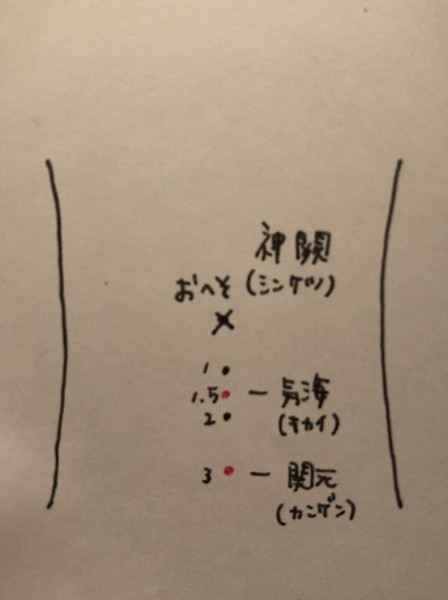 神闕
おへそ (シンケツ)
1
1.5 ー 気海
2 (キカイ)
3 ー 関元
(カンゲン)